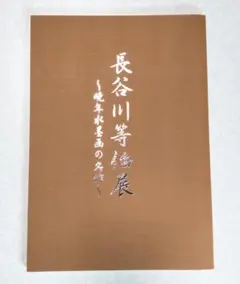 長谷川等伯展
〜晩年水墨画の名作〜